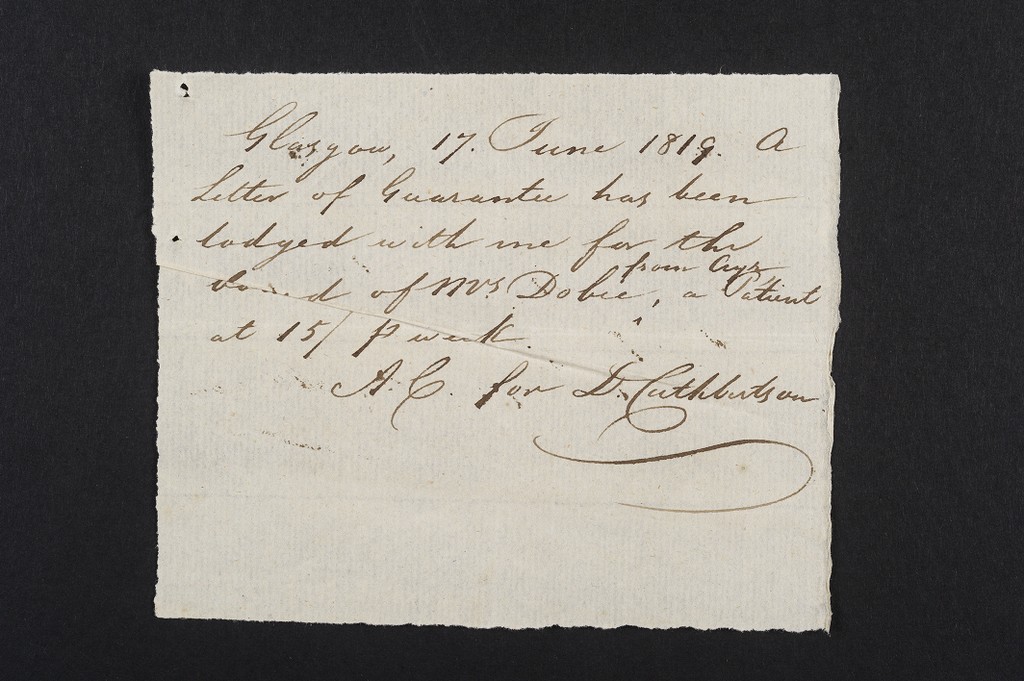 Glasgow, 17. June 1819. A
Letter of Guarantee has been
lodged with me for the
from Ayr
of Mrs Dobie, a Patient
at 15/ p week.
A. C. for D. Cuthbertson